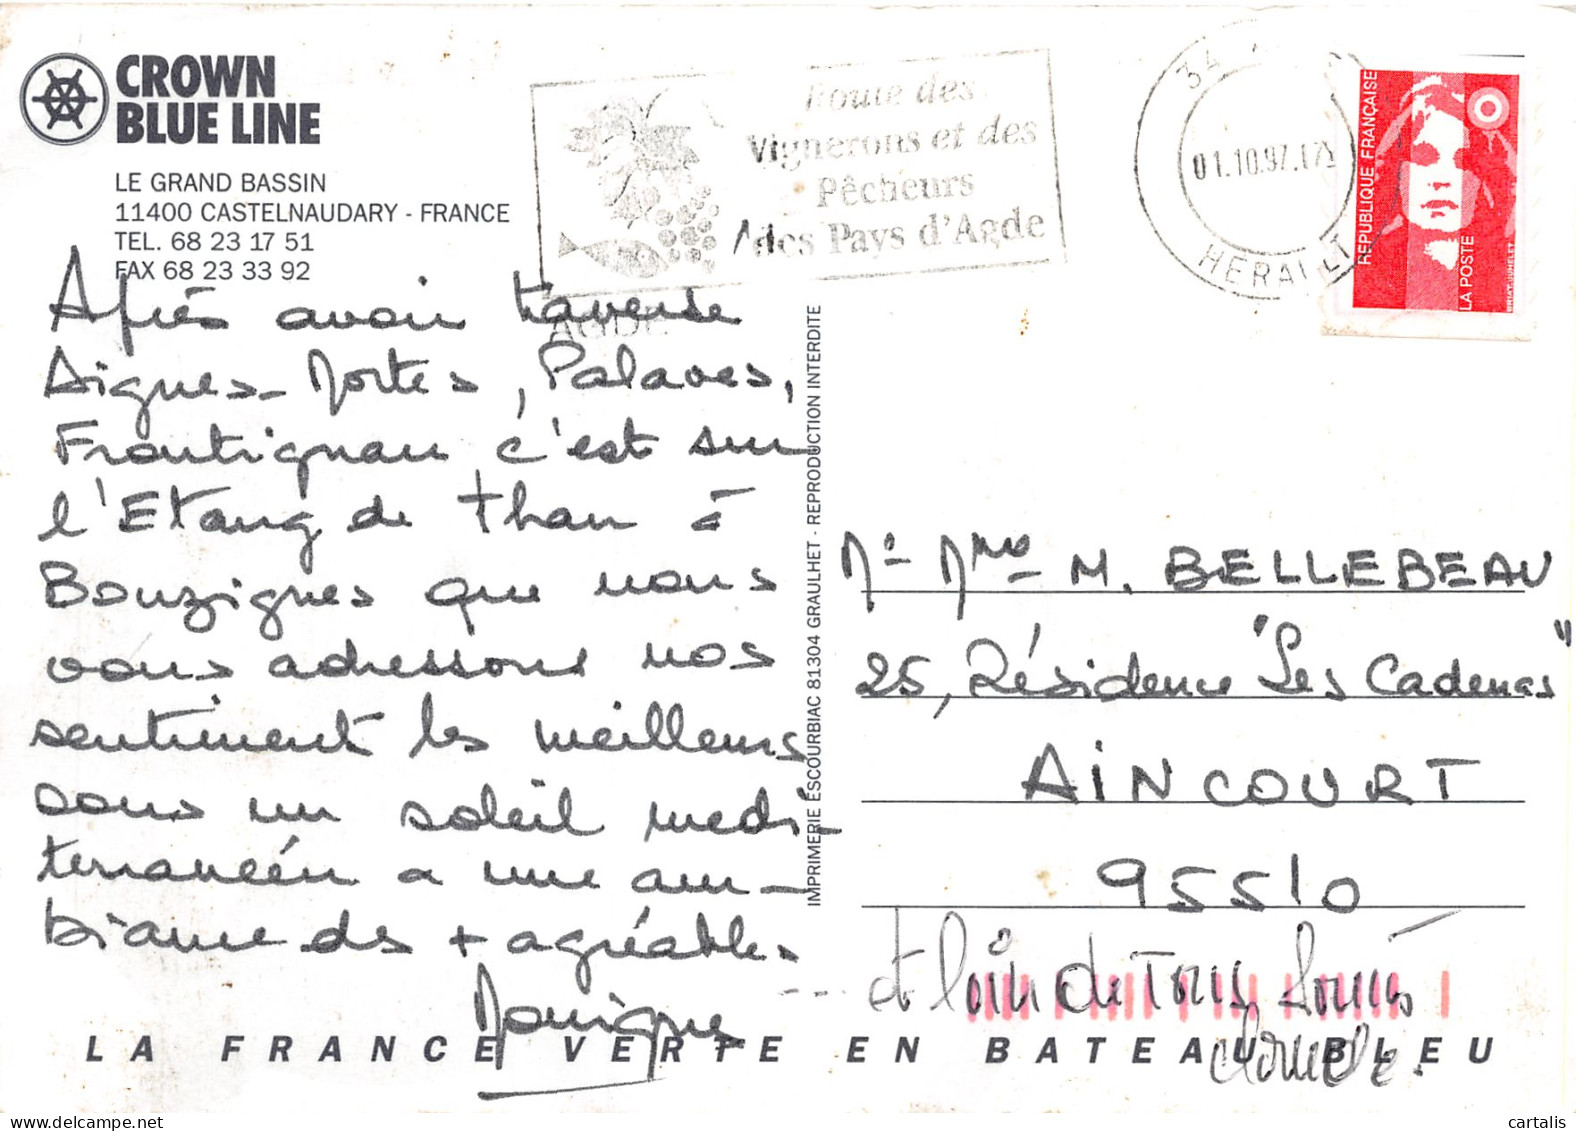 CROWN
BLUE LINE
LE GRAND BASSIN
11400 CASTELNAUDARY - FRANCE
TEL. 68 23 17 51
FAX 68 23 33 92
Route des
Vignerons et des
Pêcheurs
des Pays d'Agde
AGDE
34
01.10.97.17
HERAULT
REPUBLIQUE FRANÇAISE
LA POSTE
Après avoir traversé
Aigues-Mortes, Palavas,
Frontignan c'est sur
l'Etang de Thau à
Bouzigues que nous
vous adressons nos
sentiment les meilleurs
sous un soleil medi-
terranéen a une am-
biance des + agréables
Monique
IMPRIMERIE ESCOURBIAC 81304 GRAULHET - REPRODUCTION INTERDITE
Mr Mme M. BELLEBEAU
25, Résidence "Les Cadenas"
AINCOURT
95510
... et loin de Tous Soucis
LA FRANCE VERTE EN BATEAU BLEU